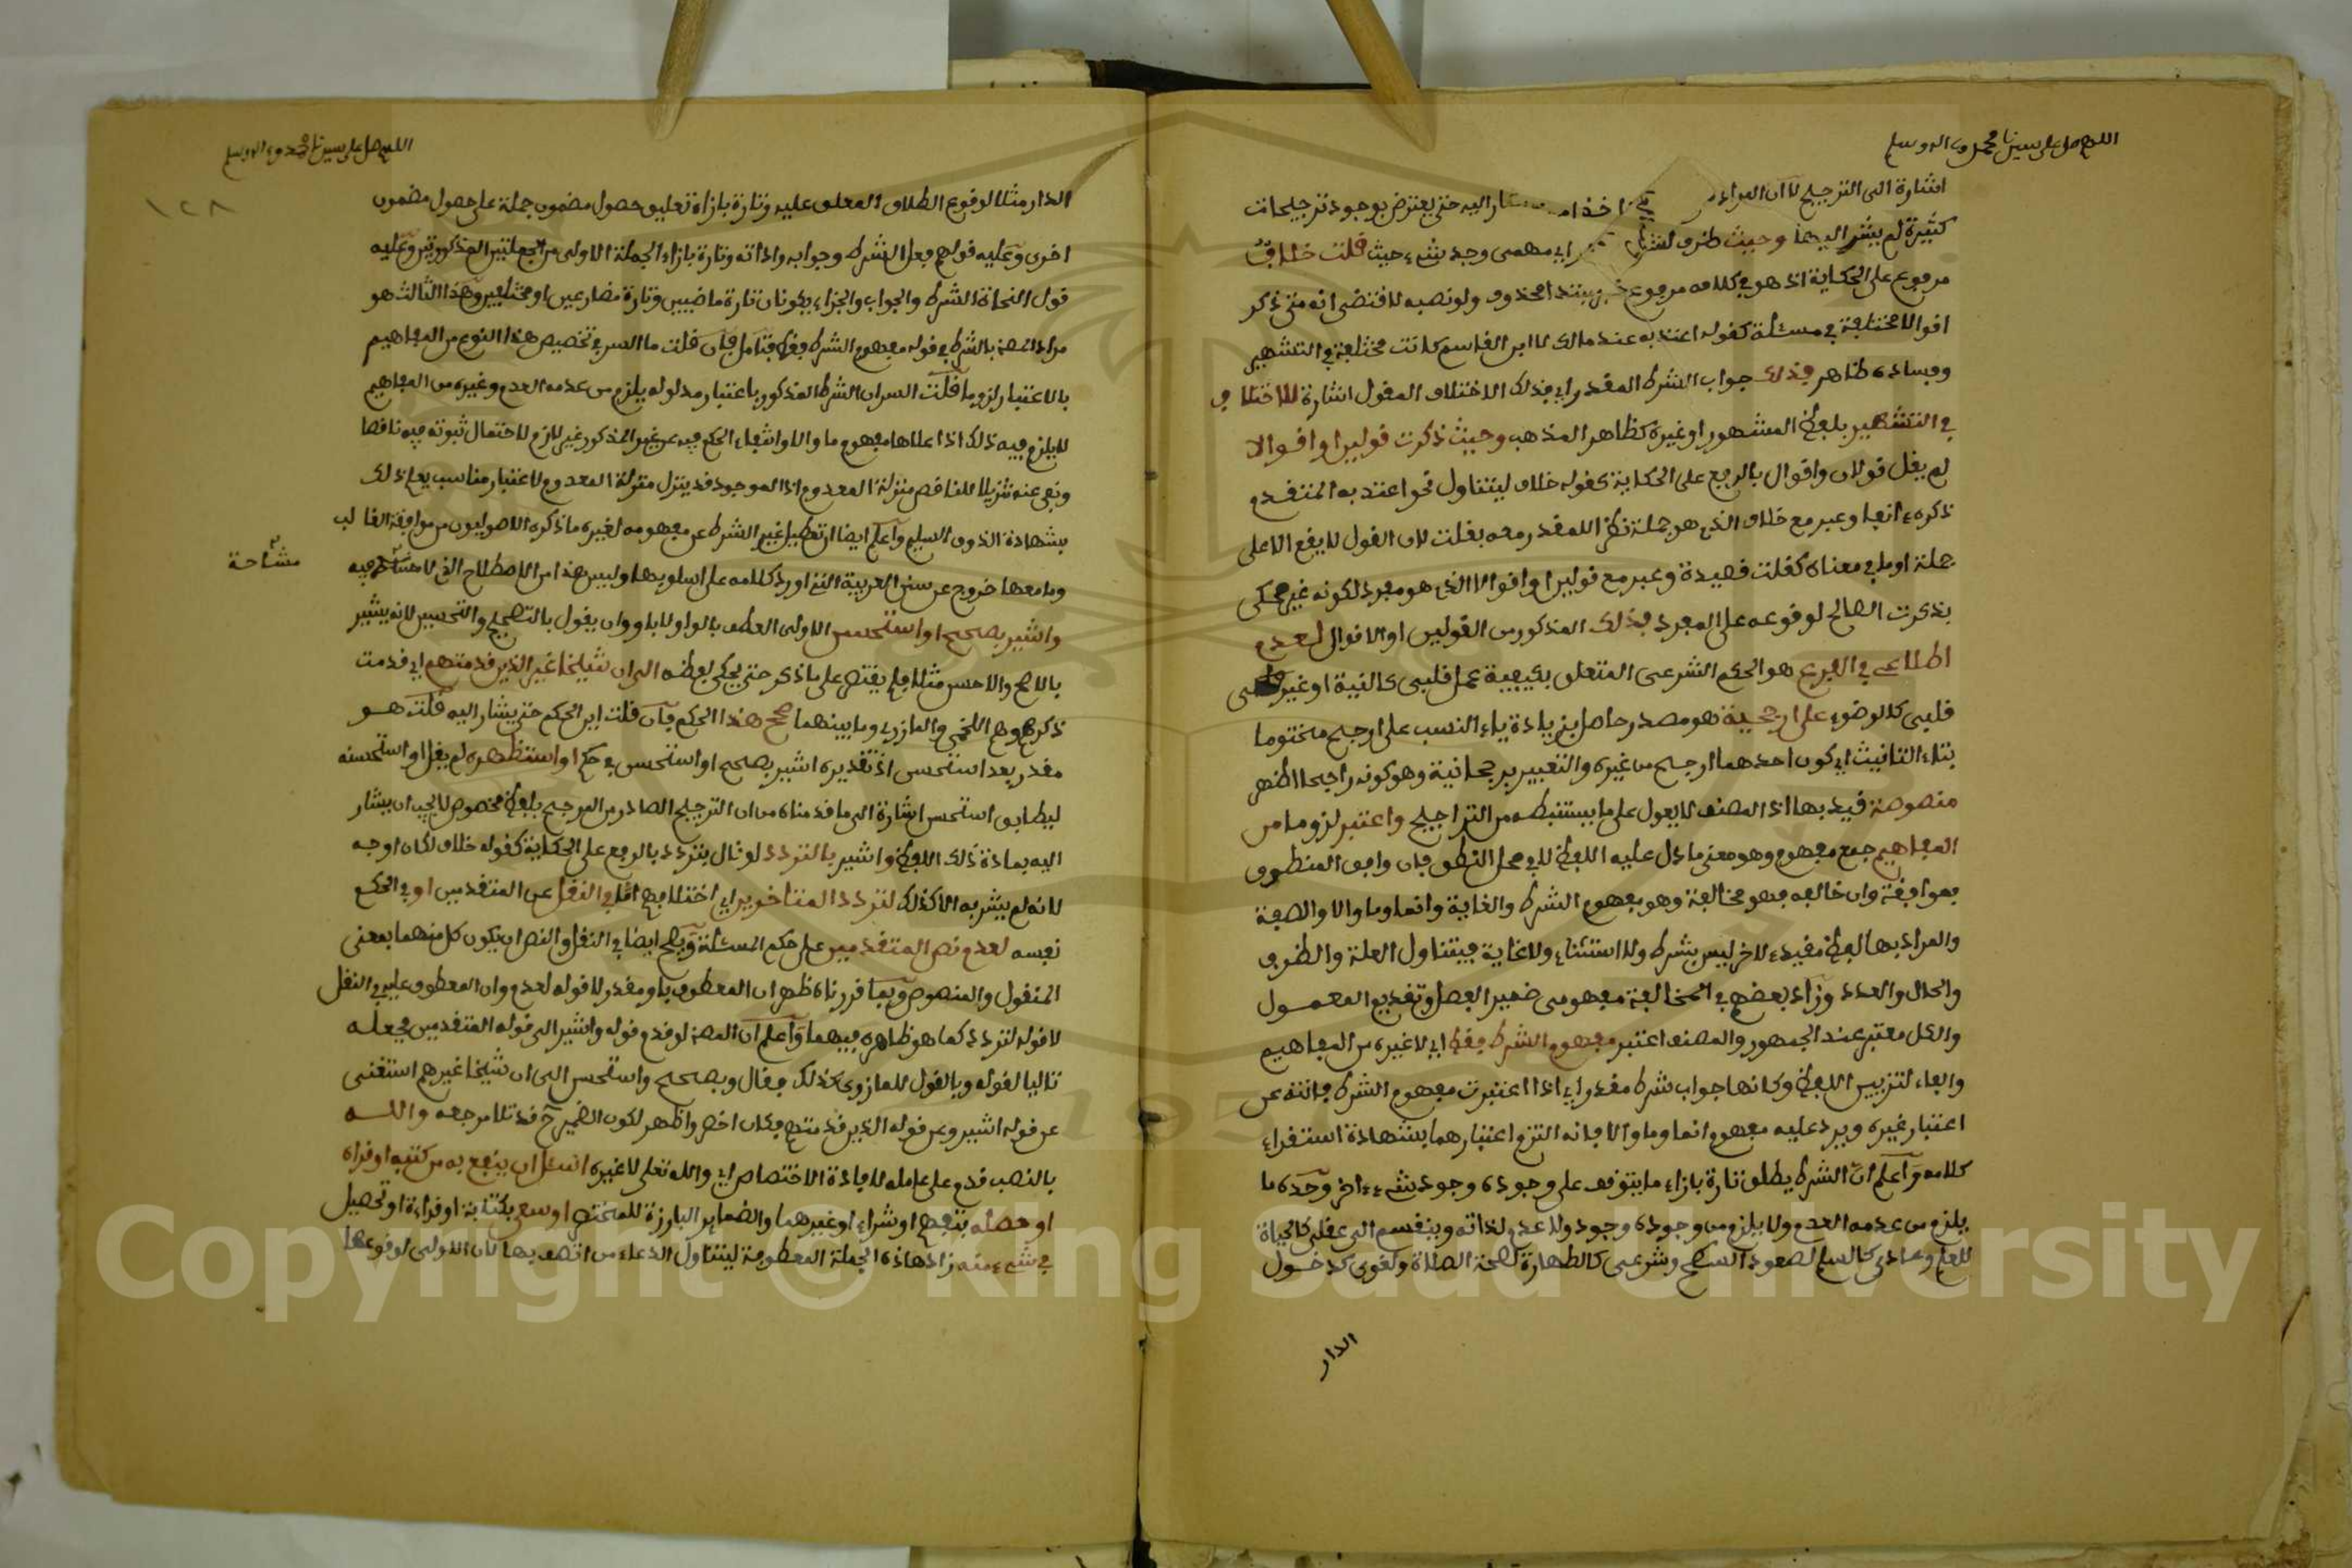 اللهم صل على سيدنا محمد وءاله وسلم
اشارة الى الترجيح لا ان المراد اخذا مشار اليه حتى يعترض بوجود ترجيحات
كثيرة لم يشر اليها وحيث ظرف اي مهمى وجد شيء حيث قلت خلاف
مرفوع على الحكاية اذ هو في كلامه مرفوع خبر مبتدا محذوف ولو نصبه لاقتضى انه متى ذكر
اقوالا مختلفة في مسئلة كقوله اعتد به عند مالك لا ابن القاسم كانت مختلفة في التشهير
وفساده ظاهر فذلك جواب الشرط المقدر اي فذلك الاختلاف المقول اشارة للاختلاف
في التشهير بلفظ المشهور او غيره كظاهر المذهب وحيث ذكرت قولين او اقوالا
لم يقل قولان واقوال بالرفع على الحكاية كقوله خلاف ليتناول نحو اعتد به المتقدم
ذكره ءانفا وعبر مع خلاف الذي هو جملة نظرا للمقدر معه بقلت لان القول لا يقع الا على
جملة او ما في معناه كقلت قصيدة وعبر مع قولين او اقوالا الذي هو مفرد لكونه غير محكي
بذكرت الصالح لوقوعه على المفرد فذلك المذكور من القولين او الاقوال لعدم
اطلاعي في الفرع هو الحكم الشرعي المتعلق بكيفية عمل قلبي كالنية او غير
قلبي كالوضوء على ارجحية هو مصدر حاصل بزيادة ياء النسب على ارجح مختوما
بتاء التانيث اي كون احدهما ارجح من غيره والتعبير برجحانية وهو كونه راجحا اظهر
منصوصة قيد بها اذ المصنف لا يعول على ما يستنبطه من التراجيح واعتبر لزوما من
المفاهيم جمع مفهوم وهو معنى ما دل عليه اللفظ لا في محل النطق فان وافق المنطوق
فموافقة وان خالفه فهو مخالفة وهو مفهوم الشرط والغاية وانما وما والا والصفة
والمراد بها لفظ مقيد لاخر ليس بشرط ولا استثناء ولا غاية فيتناول العلة والظرف
والحال والعدد وزاد بعضهم في المخالفة مفهومي ضمير الفصل وتقديم المعمول
والكل معتبر عند الجمهور والمصنف اعتبر مفهوم الشرط فقط اي لا غيره من المفاهيم
والفاء لتزيين اللفظ وكانها جواب شرط مقدر اي اذا اعتبرت مفهوم الشرط فانته عن
اعتبار غيره ويرد عليه مفهوم انما وما والا فانه التزم اعتبارهما بشهادة استقراء
كلامه واعلم ان الشرط يطلق تارة بازاء ما يتوقف على وجوده وجود شيء ءاخر وحده ما
يلزم من عدمه العدم ولا يلزم من وجوده وجود ولا عدم لذاته وينقسم الى عقلي كالحياة
للعلم وعادي كالسلم لصعود السطح وشرعي كالطهارة لصحة الصلاة ولغوي كدخول
الدار
اللهم صل على سيدنا محمد وءاله وسلم
١٢٨
الدار مثلا لوقوع الطلاق المعلق عليه وتارة بازاء تعليق حصول مضمون جملة على حصول مضمون
اخرى وعليه قولهم فعل الشرط وجوابه واداته وتارة بازاء الجملة الاولى من الجملتين المذكورتين وعليه
قول النحاة الشرط والجواب والجزاء يكونان تارة ماضيين وتارة مضارعين او مختلفين وهذا الثالث هو
مراد المصنف بالشرط في قوله مفهوم الشرط فقط فتامل فان قلت ما السر في تخصيص هذا النوع من المفاهيم
بالاعتبار لزوما قلت السر ان الشرط المذكور باعتبار مدلوله يلزم من عدمه العدم وغيره من المفاهيم
لا يلزم فيه ذلك اذا علاها مفهوم ما والا وانتفاء الحكم فيه عن غير المذكور غير لازم لاحتمال ثبوته فيه ناقصا
ونفي عنه تنزيلا للناقص منزلة المعدوم اذ الموجود قد ينزل منزلة المعدوم لاعتبار مناسب يعلم ذلك
بشهادة الذوق السليم واعلم ايضا ان تعطيل غير الشرط عن مفهومه لغيره ما ذكره الاصوليون من موافقة الغالب
وما معها خروج عن سنن العربية التي اورد كلامه على اسلوبها وليس هذا من الاصطلاح الذي لا فيه
مشاحة
واشير بصحح او استحسن الاولى العطف بالواو لا باو وان يقول بالتصحيح والتحسين لانه يشير
بالاصح والاحسن مثلا فلم يقتصر على ما ذكر حتى يحكى لفظه الى ان شيخا غير الذين قدمتهم اي قدمت
ذكرهم وهم اللخمي والمازري وما بينهما صحح هذا الحكم فان قلت اين الحكم حتى يشار اليه قلت هو
مقدر بعد استحسن اذ تقديره اشير بصحح او استحسن في حكم او استظهره لم يقل او استحسنه
ليطابق استحسن اشارة الى ما قدمناه من ان الترجيح الصادر من المرجح بلفظ مخصوص لا يجب ان يشار
اليه بمادة ذلك اللفظ واشير بالتردد لو قال بتردد بالرفع على الحكاية كقوله خلاف لكان اوجه
لانه لم يشر به الا كذلك لتردد المتاخرين اي اختلافهم اما في النقل عن المتقدمين او في الحكم
نفسه لعدم نص المتقدمين على حكم المسئلة ويصح ايضا في النقل والنص ان يكون كل منهما بمعنى
المنقول والمنصوص وبما قررناه ظهر ان المعطوف باو مقدر لا قوله لعدم وان المعطوف عليه في النقل
لا قوله لتردد كما هو ظاهره فيهما واعلم ان المصنف لو قدم قوله واشير الى قوله المتقدمين فجعله
تاليا لقوله وبالقول للمازري كذلك فقال وبصحح واستحسن الى ان شيخا غيرهم استغنى
عن قوله اشير وعن قوله الذين قدمتهم فكان اخصر واظهر لكون الضمير ح قد تلا مرجعه والله
بالنصب قدم على عامله لافادة الاختصاص اي والله تعلى لا غيره اسئل ان ينفع به من كتبه او قراه
او حصله بتفهم او شراء او غيرهما والضمائر البارزة للمختصر او سعى بكتابة او قراءة او تحصيل
في شيء منه زاد هاذه الجملة المعطوفة ليتناول الدعاء من اتصف بها لان الاولى لوقوعها
Copyright © King Saud University